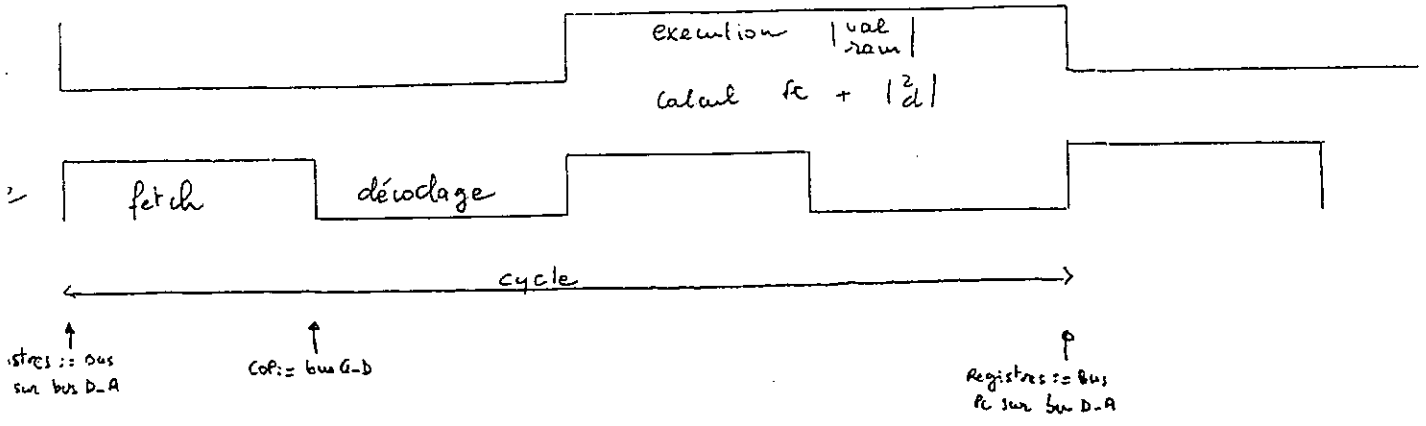 execution | val ram |
calcul Pc + | 2 d |
fetch
décodage
cycle
istres := Bus
sur bus D_A
COP := bus G-D
Registres := Bus
Pc sur bus D-A